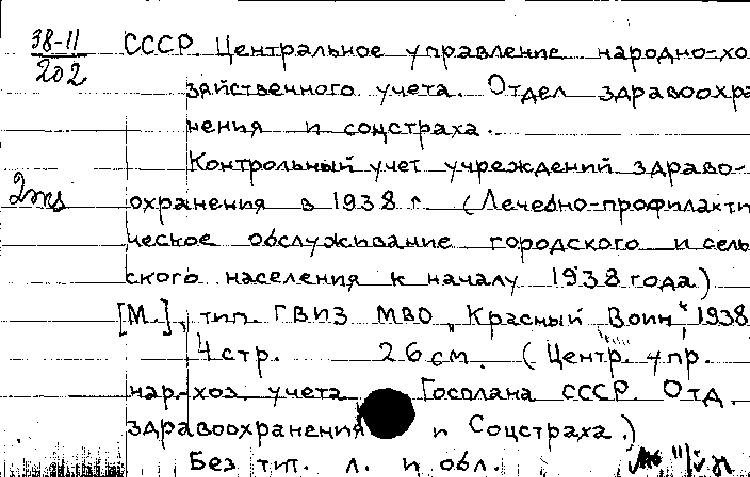 38-11
202
СССР. Центральное управление народно-хо
зяйственного учета. Отдел здравоохра
нения и соцстраха.
Контрольный учет учреждений здраво-
охранения в 1938 г. (Лечебно-профилакти
ческое обслуживание городского и сель
ского населения к началу 1938 года)
[М.], тип. ГВИЗ МВО „Красный Воин", 1938
4 стр. 26 см. (Центр. упр.
нар.-хоз. учета Госплана СССР. Отд.
здравоохранения и Соцстраха.)
Без тит. л. и обл.